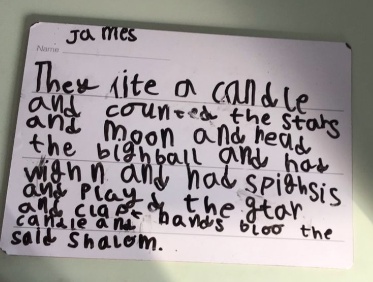 James
Name
They lite a candle
and counted the stars
and moon and head
the bighball and had
wighn and had spighsis
and play d the gtar
and clapt hands bloo the
candle and
said shalom.